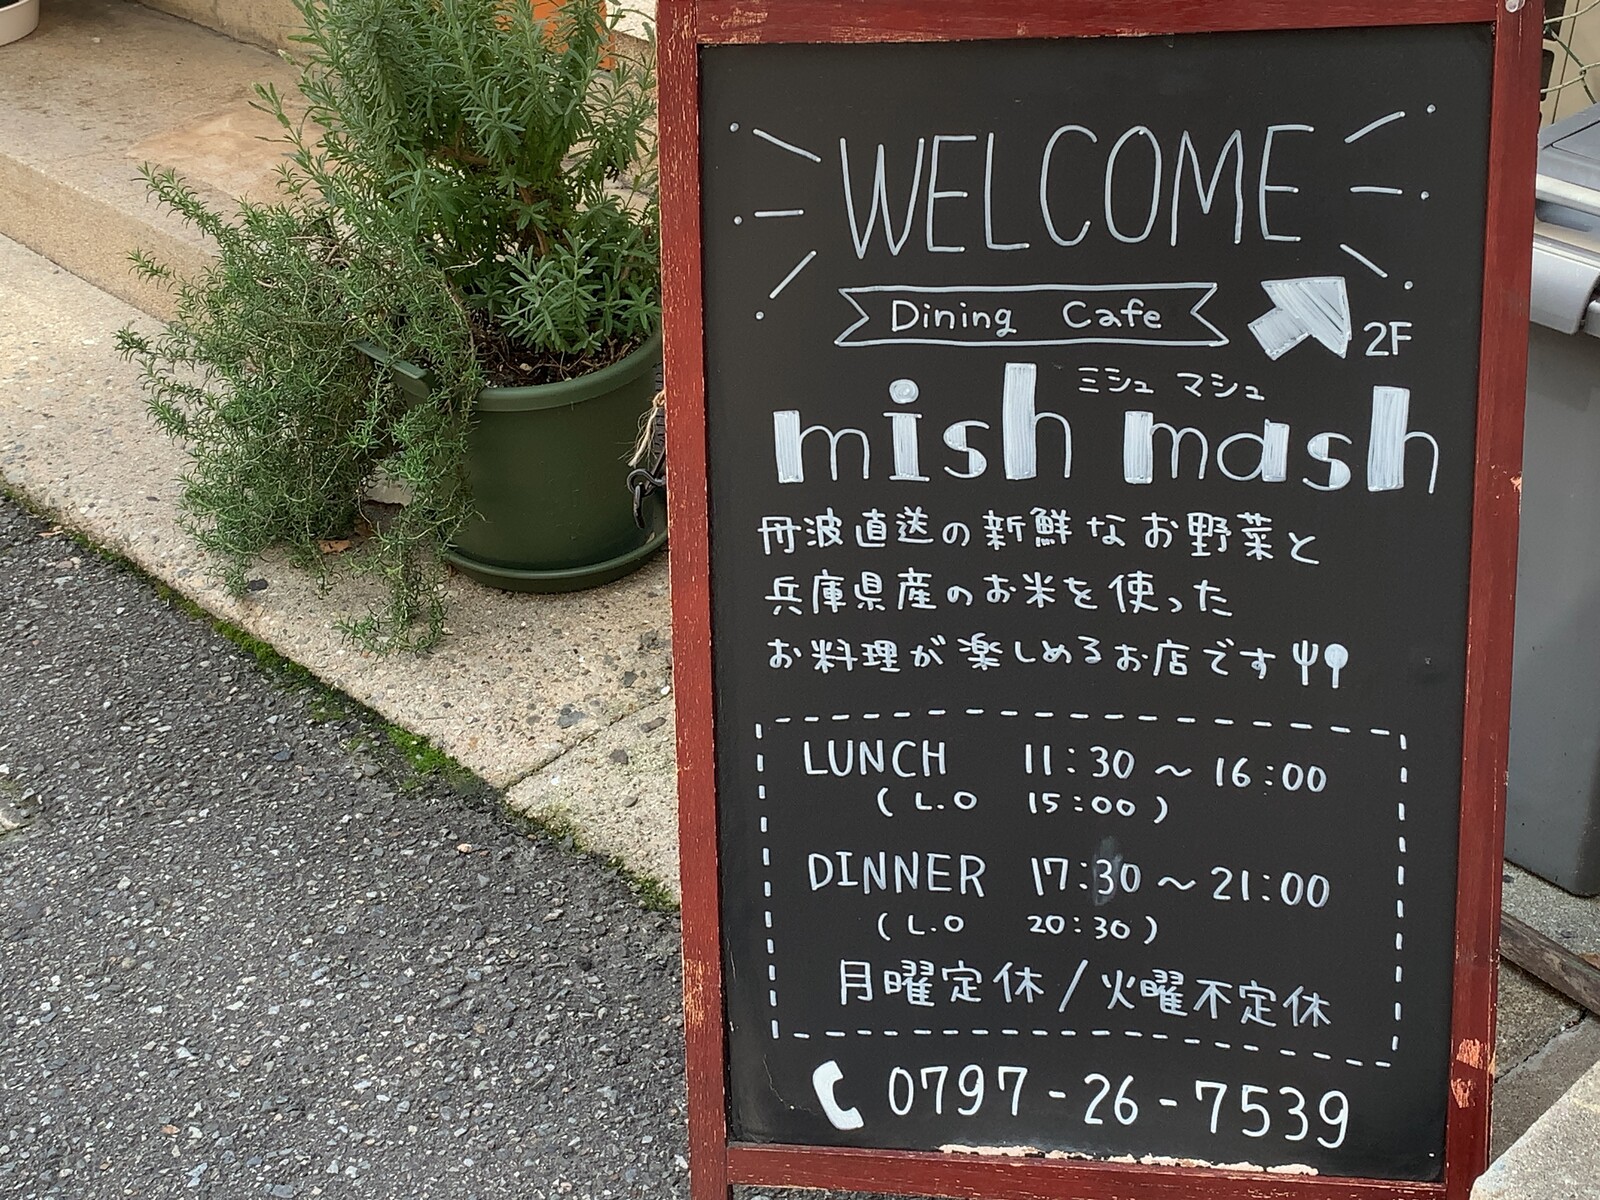 WELCOME
Dining Cafe
2F
ミシュ マシュ
mish mash
丹波直送の新鮮なお野菜と
兵庫県産のお米を使った
お料理が楽しめるお店です
LUNCH 11:30 ~ 16:00
( L.O 15:00 )
DINNER 17:30 ~ 21:00
( L.O 20:30 )
月曜定休/火曜不定休
0797-26-7539